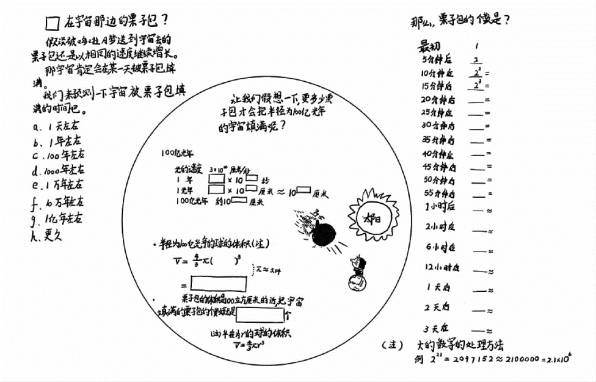 □ 在宇宙那边的栗子包?
假设被哆啦A梦送到宇宙去的
栗子包还是以相同的速度继续增长。
那宇宙肯定会在某一天被栗子包填
满。
我们来预测一下宇宙被栗子包填
满的时间吧。
a. 1天左右
b. 1年左右
c. 100年左右
d. 1000年左右
e. 1万年左右
f. 10万年左右
g. 1亿年左右
h. 更久
让我们假想一下,要多少栗
子包才会把半径为100亿光年
的宇宙填满呢?
100亿光年
光的速度 3×10¹⁰ 厘米/秒
1年 □ × 10□ 秒
1光年 □ × 10□ 厘米 ≈ 10□ 厘米
100亿光年 约10□ 厘米
太阳
·半径为100亿光年的球的体积(注)
V = 4/3 π( )³
π≈3.14
= □
·栗子包的体积为100立方厘米的话,把宇宙
填满的栗子包的个数就是 □ 个
(注)半径为r的球的体积
V=4/3πr³
那么,栗子包的个数是?
最初 1
5分钟后 2
10分钟后 2² =
15分钟后 2³ =
20分钟后 =
25分钟后 =
30分钟后 =
35分钟后 =
40分钟后 =
45分钟后 =
50分钟后 =
55分钟后 =
1小时后 ≈
2小时后 ≈
6小时后 ≈
12小时后 ≈
1天后 ≈
2天后 ≈
3天后 ≈
(注) 大的数字的处理方法
例 2²¹ = 2097152 ≈ 2100000 = 2.1×10⁶